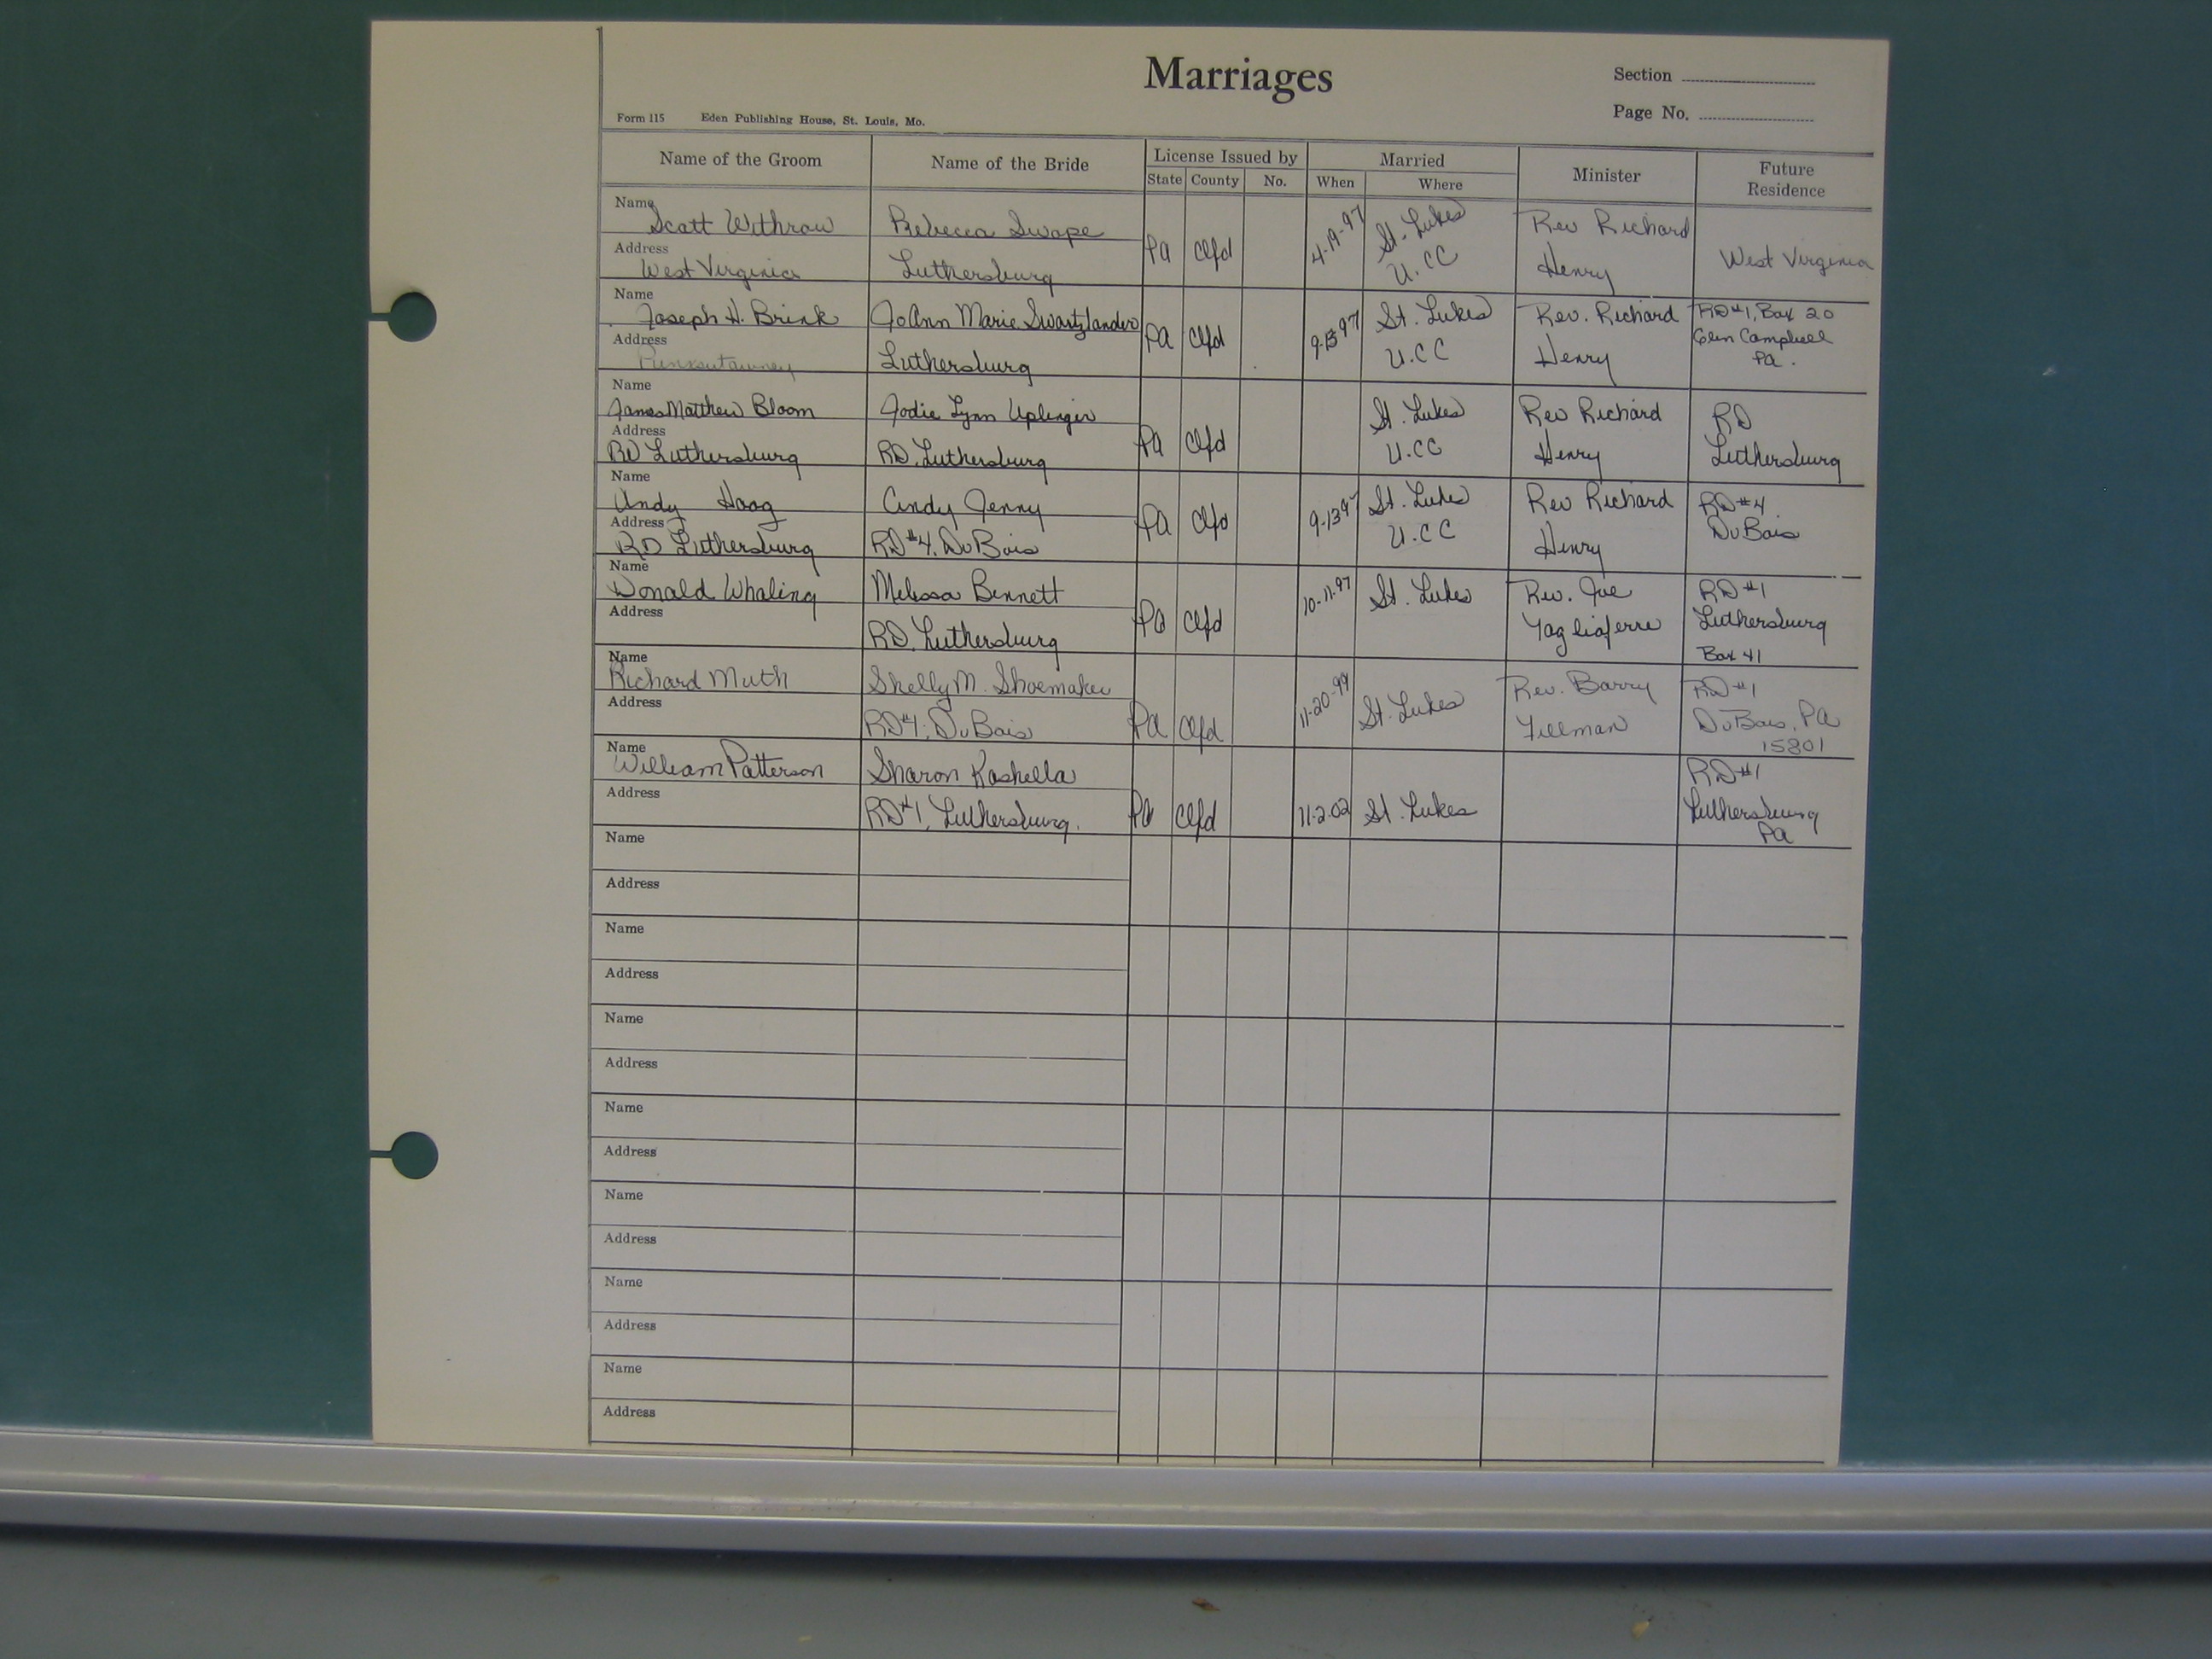 Marriages
Section
Page No.
Form 115 Eden Publishing House, St. Louis, Mo.
Name of the Groom Name of the Bride License Issued by Married Minister Future Residence
State County No. When Where
Name Scott Withrow Rebecca Swope Pa Clfd 4-19-97 St. Lukes Rev Richard West Virginia
Address West Virginia Luthersburg U.CC Henry
Name Joseph H. Brink JoAnn Marie Swartzlander Pa Clfd 9-13-97 St. Lukes Rev. Richard RD#1, Box 20
Address Punxsutawney Luthersburg U.CC Henry Glen Campbell Pa.
Name James Matthew Bloom Jodie Lynn Uplinger Pa Clfd St. Lukes Rev Richard RD
Address RD Luthersburg RD. Luthersburg U.CC Henry Luthersburg
Name Andy Haag Cindy Jenny Pa Clfd 9-13 97 St. Lukes Rev Richard RD#4
Address RD Luthersburg RD#4. DuBois U.CC Henry DuBois
Name Donald Whaling Melissa Bennett Pa Clfd 10-11-97 St. Lukes Rev. Joe RD#1
Address RD. Luthersburg Tagliaferre Luthersburg
Box 41
Name Richard Muth Shelly M. Shoemaker Pa Clfd 11-20-99 St. Lukes Rev. Barry RD#1
Address DuBois Fillman DuBois, PA
15801
Name William Patterson Sharon Kashella Pa Clfd 11-2-02 St. Lukes RD#1
Address RD#1, Luthersburg. Luthersburg
Pa
Name
Address
Name
Address
Name
Address
Name
Address
Name
Address
Name
Address
Name
Address